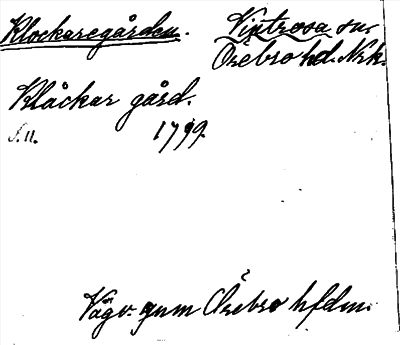 Klockaregården. Vintrosa sn.
Örebro hd. Nrk.
Klåckar gård.
S. 11. 1799.
Vägv. gnm Örebro hfdm.